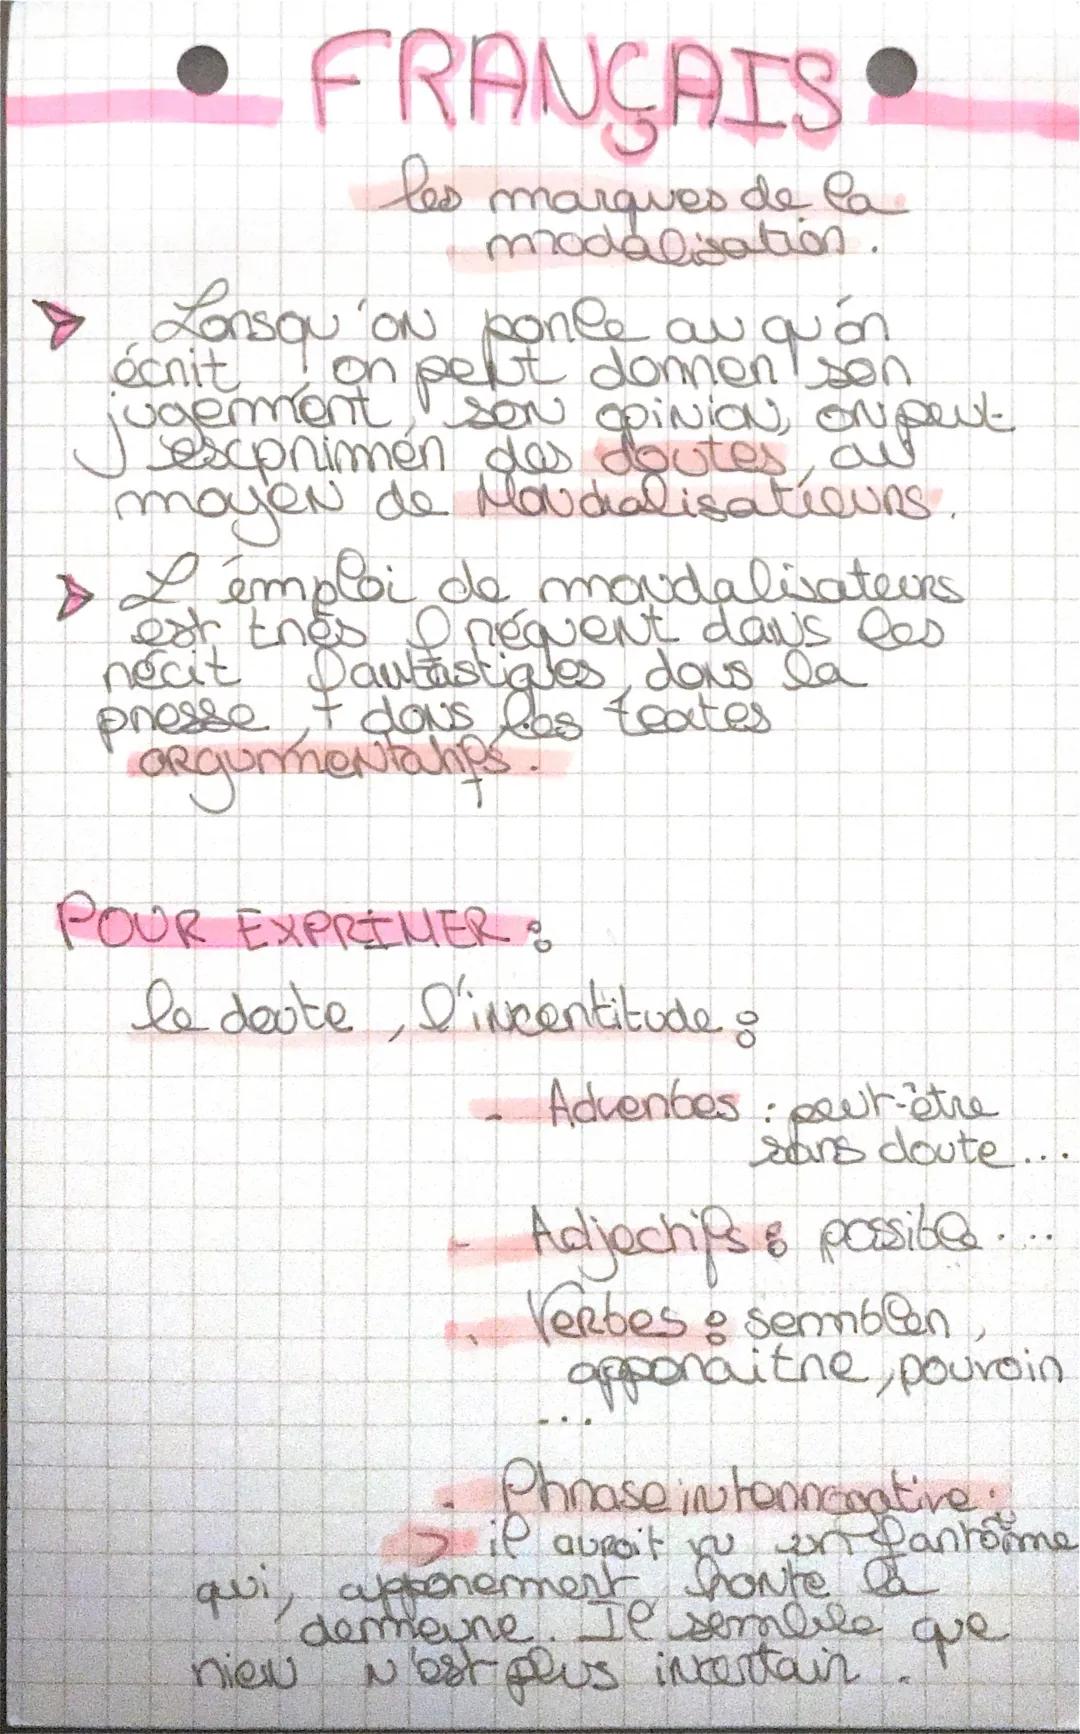 FRANÇAIS
les marques de la
modalisation.
Lorsqu'on parle ou qu'on
écrit, on peut donner son
jugement, son opinion, on peut
exprimer des doutes, au
moyen de Moudalisateurs.
L'emploi de moudalisateurs
est très fréquent dans les
récit fantastiques, dans la
presse, + dans les textes
argumentatifs.
POUR EXPRIMER :
le doute, l'incertitude :
- Adverbes : peut-être
sans doute...
- Adjectifs : possible....
- Verbes : sembler,
apparaitre, pouvoir
...
- Phrase interrogative :
> il aurait vu un fantôme
qui, apparement, hante la
demeure. Il semble que
rien n'est plus incertain.